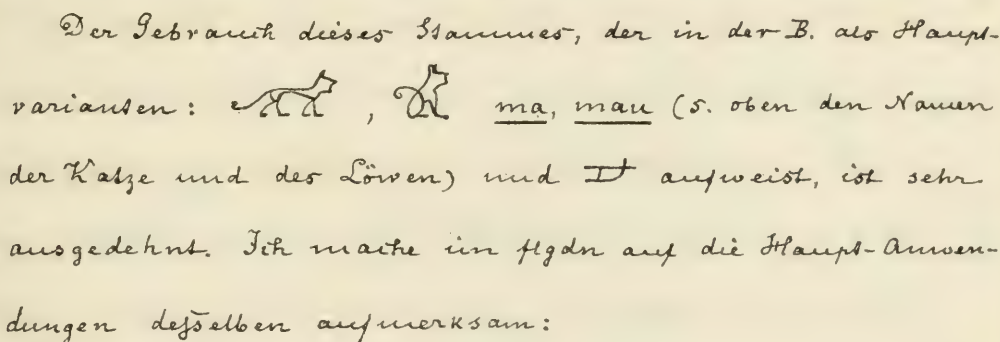 Der Gebrauch dieses Stammes, der in der B. als Haupt-
varianten: , ma, mau (s. oben den Namen
der Katze und des Löwen) und aufweist, ist sehr
ausgedehnt. Ich mache im flgdn auf die Haupt-Anwen-
dungen deßelben aufmerksam: